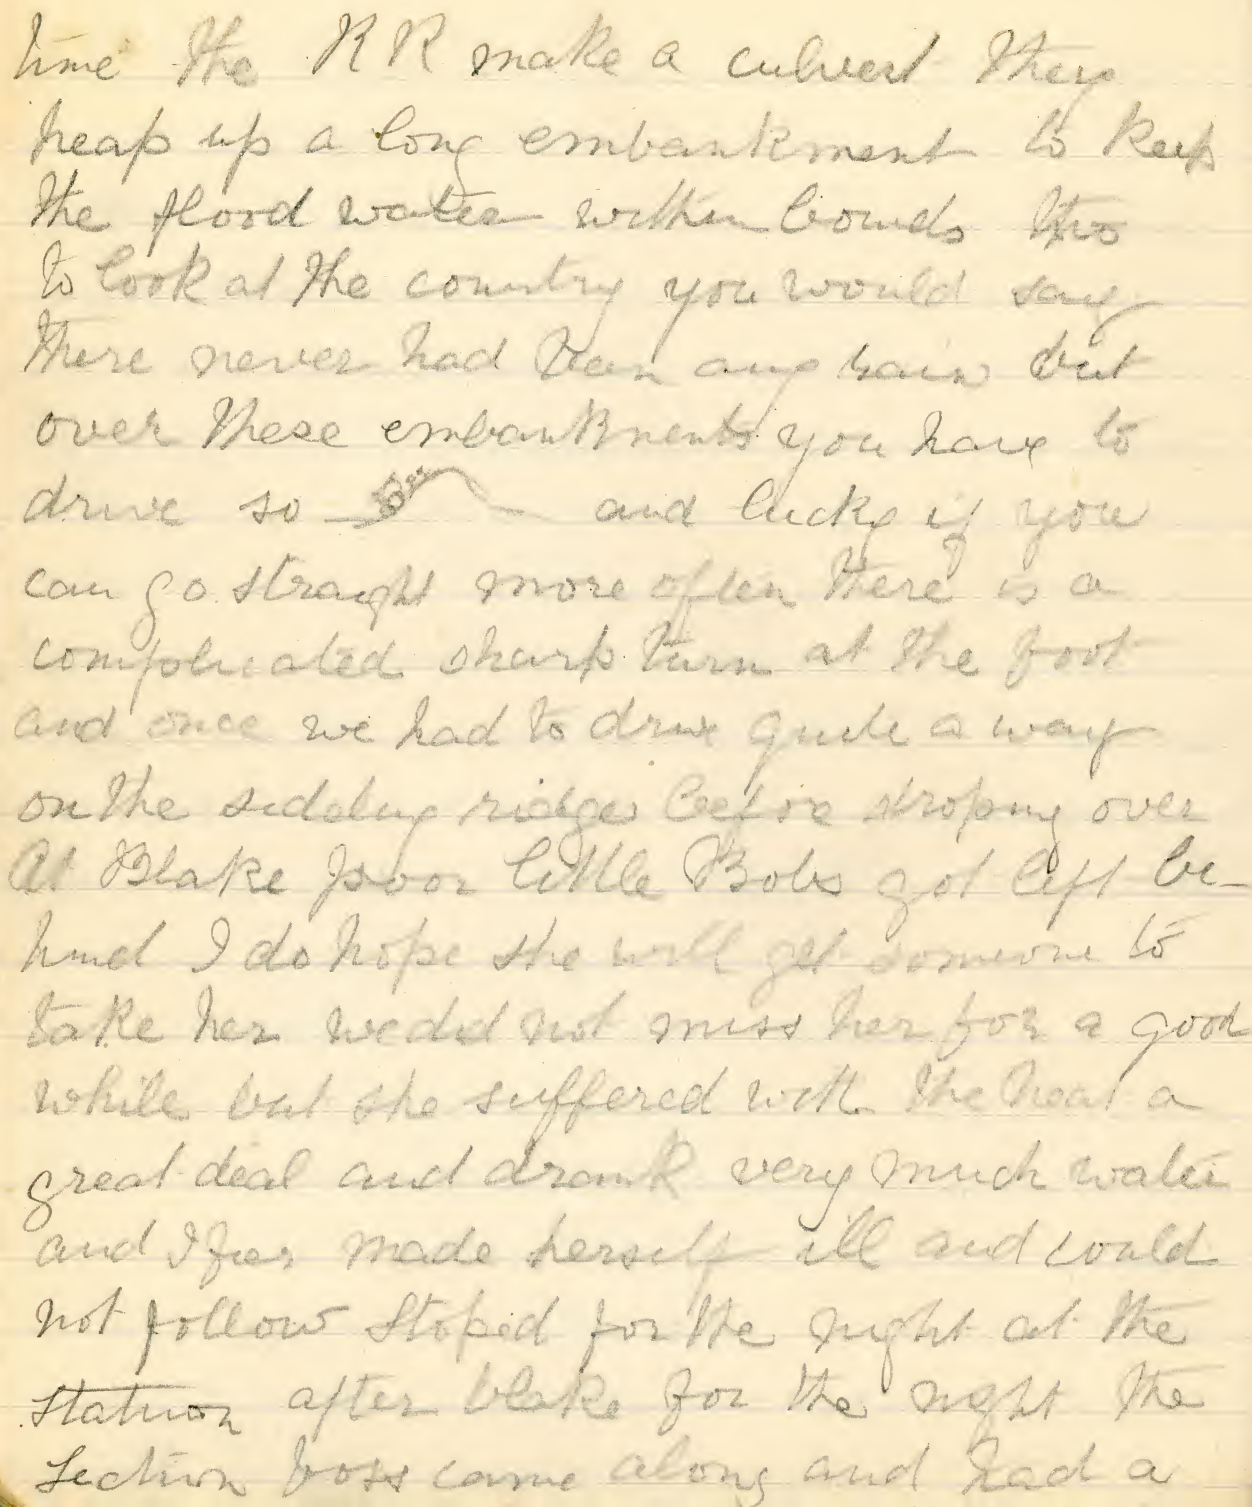 time the RR make a culvert they
heap up a long embankment to keep
the flood water within bounds tho
to look at the country you would say
there never had been any rain but
over these embankments you have to
drive so and lucky if you
can go straight more often there is a
complicated sharp turn at the foot
and once we had to drive quite a way
on the sideling ridge before droping over
At Blake poor little Bobs got left be-
hind I do hope she will get someone to
take her we did not miss her for a good
while but she suffered with the heat a
great deal and drank very much water
and I fear made herself ill and could
not follow stoped for the night at the
station after blake for the night the
Section boss came along and had a